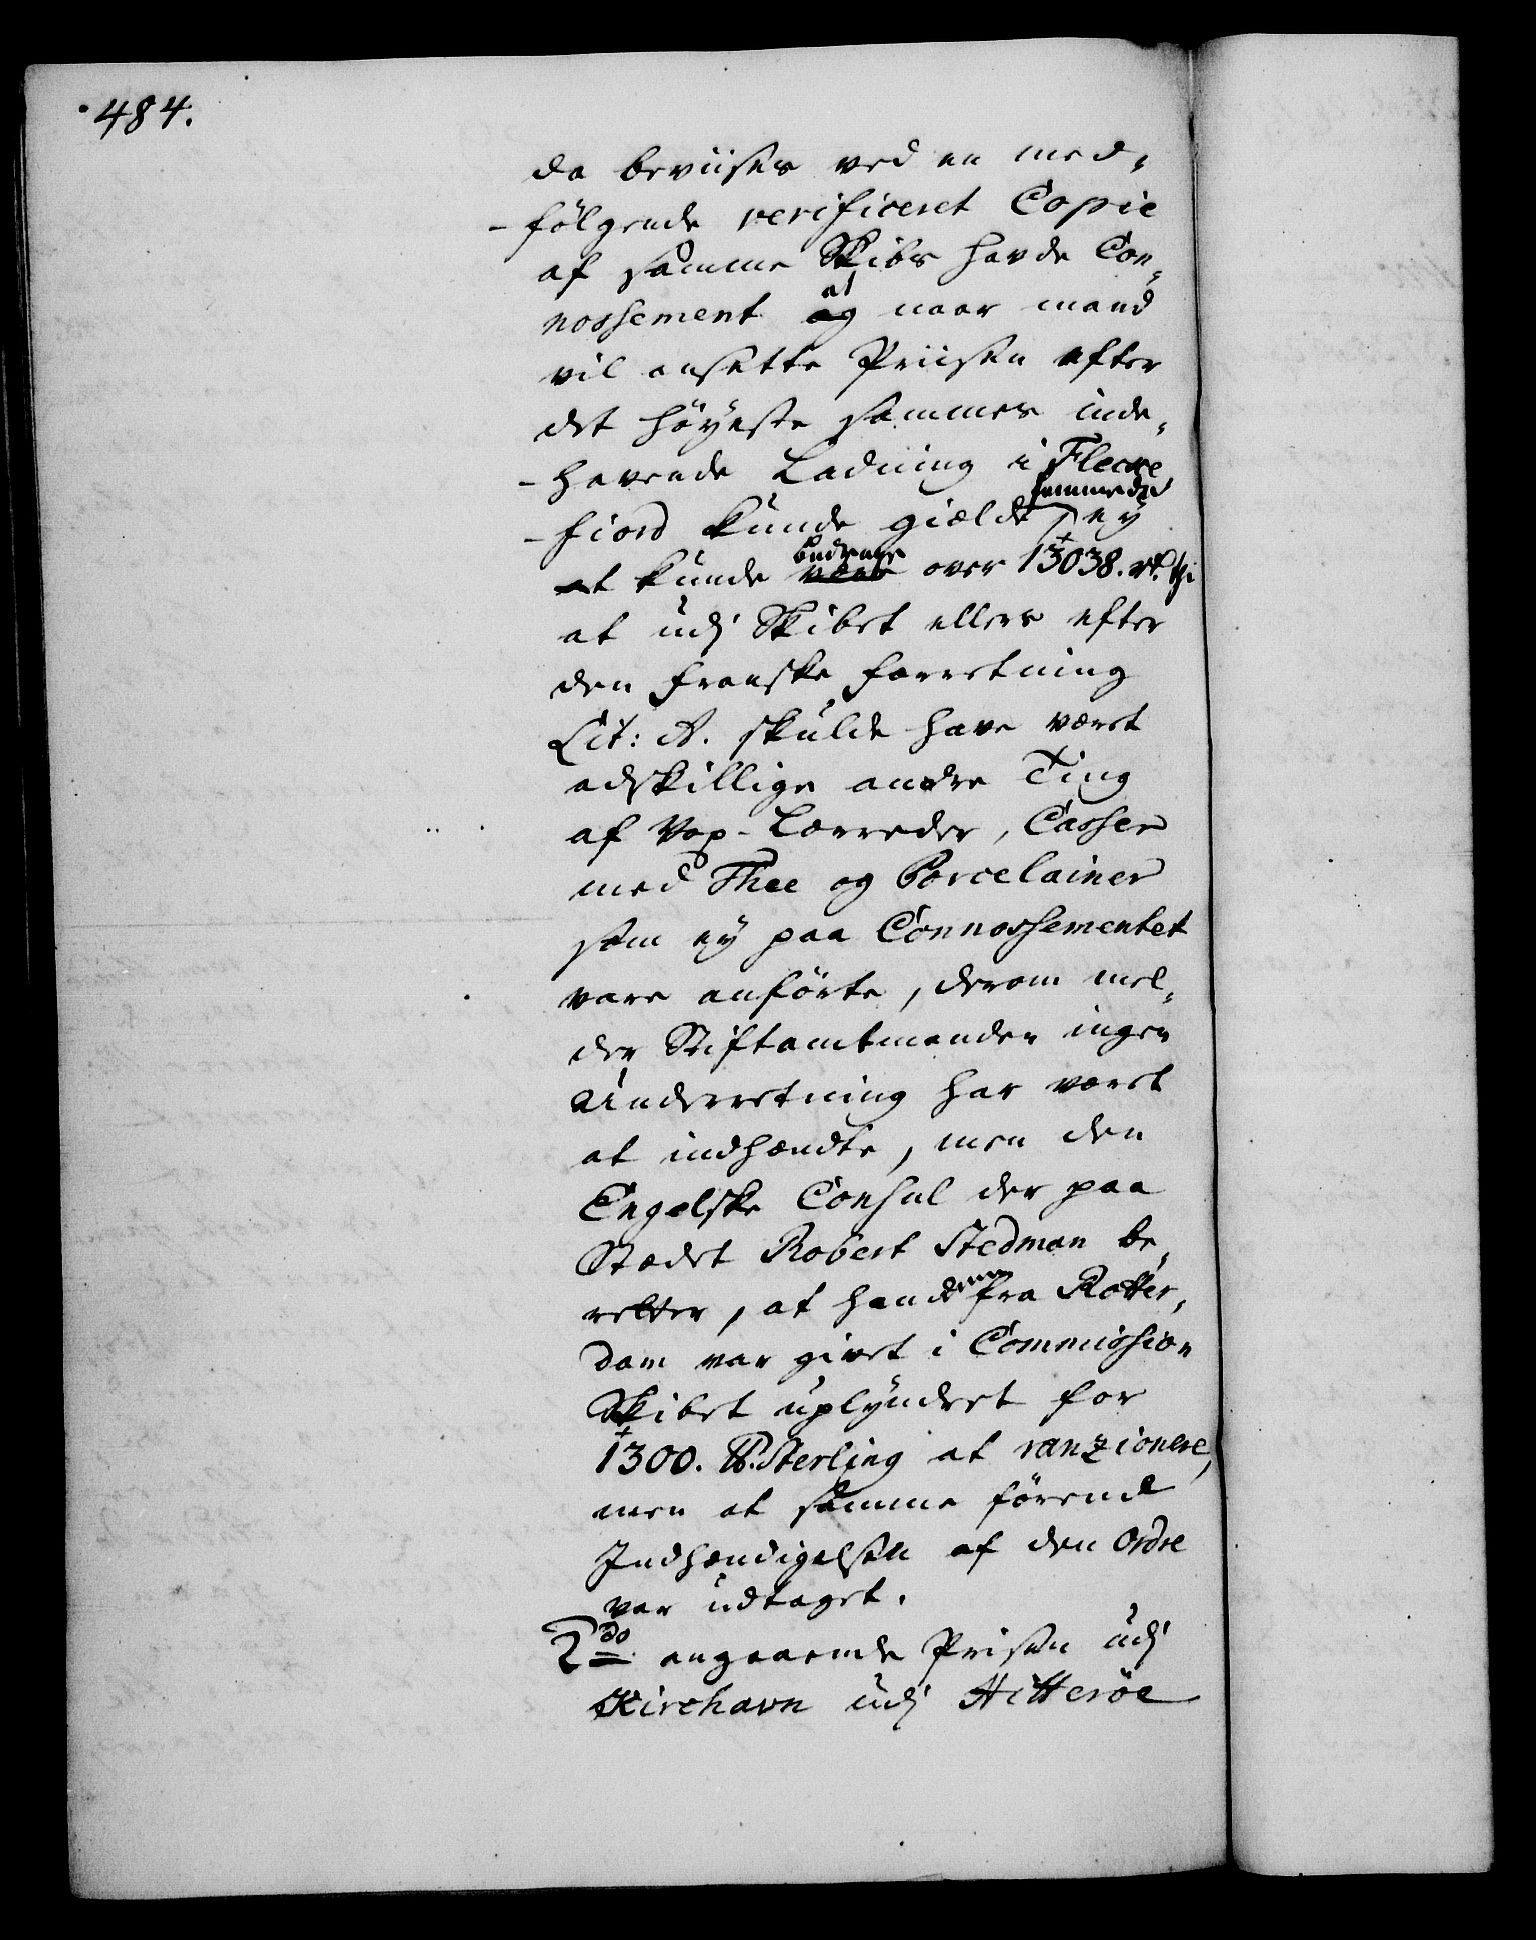 484.
da beviises ved en med-
-følgende verificeret Copie
af samme Skibs havde Con-
nossement at og naar mand
vil ansette Priisen efter
det høyeste sammes inde-
-havende Ladning i Flecke
-fiord kunde gielde, sammes ey
at kunde være over 13038. rd. thi
at udj Skibet ellers efter
den franske Forretning
Lit: A. skulde have været
adskillige andre Ting
af Vox-Lærreder, Casser
med Thee og Porcelainer
som ey paa Connossementet
vare anførte, derom mel-
der Stiftamtmanden ingen
Underretning har været
at indhændte, men den
Engelske Consul der paa
Stædet Robert Stedman be-
retter, at hand fra Rotter-
dam var givet i Commission
Skibet uplyndret for
1300. ℔. Sterling at ranzionere,
men at samme førend
Indhændigelsen af den Ordre
var udtaget.
2do angaaende Prisen udj
Kirchavn udj Hitterøe